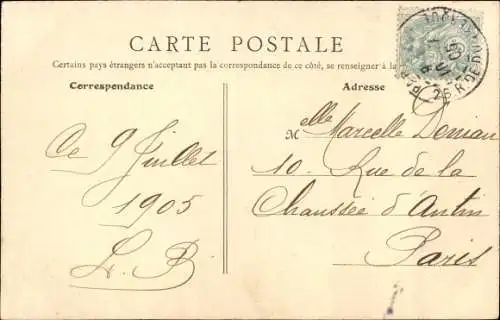 CARTE POSTALE
Certains pays étrangers n'acceptant pas la correspondance de ce côté, se renseigner à la
Correspondance
Adresse
Ce 9 Juillet
1905
L. B
Melle Marcelle
10. Rue de la
Chaussée d'Antin
Paris
25 R. DE